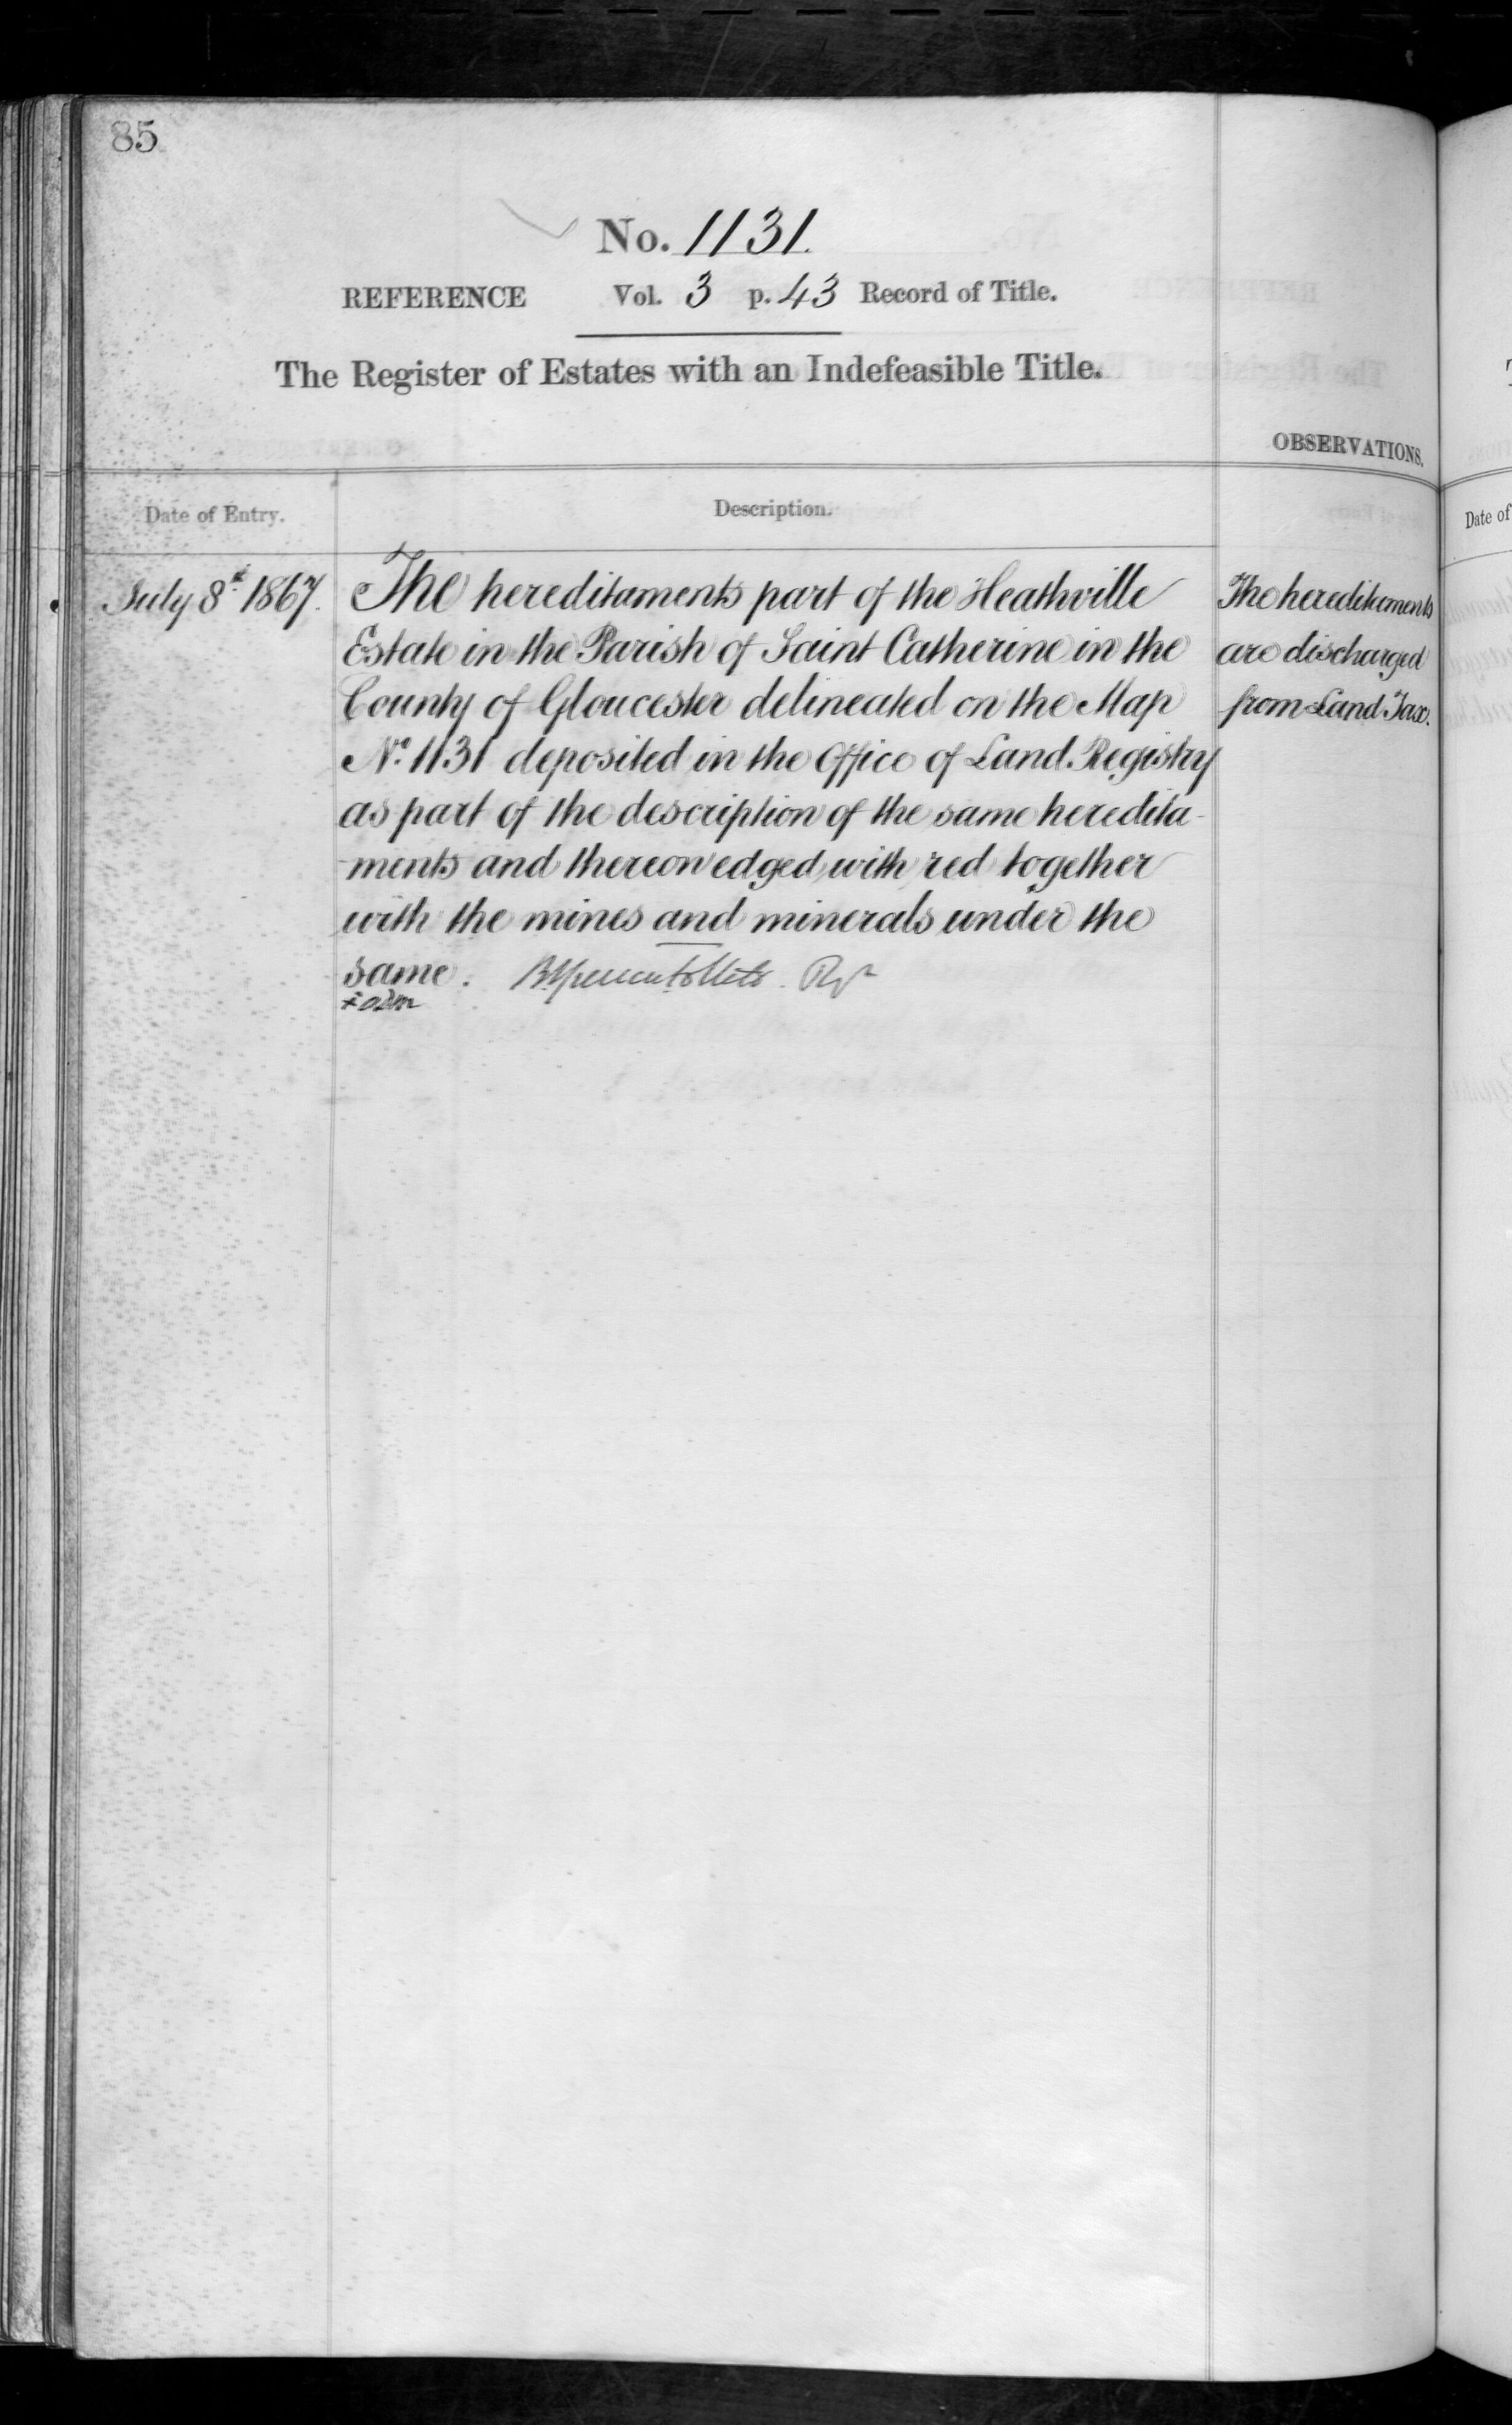 85
No. 1131.
REFERENCE Vol. 3 p. 43 Record of Title.
The Register of Estates with an Indefeasible Title.
OBSERVATIONS.
Date of Entry.
Description.
July 8th 1867.
The hereditaments part of the Heathville
Estate in the Parish of Saint Catherine in the
County of Gloucester delineated on the Map
No. 1131 deposited in the Office of Land Registry
as part of the description of the same heredita-
-ments and thereon edged with red together
with the mines and minerals under the
same.
The hereditaments
are discharged
from Land Tax.
Date of